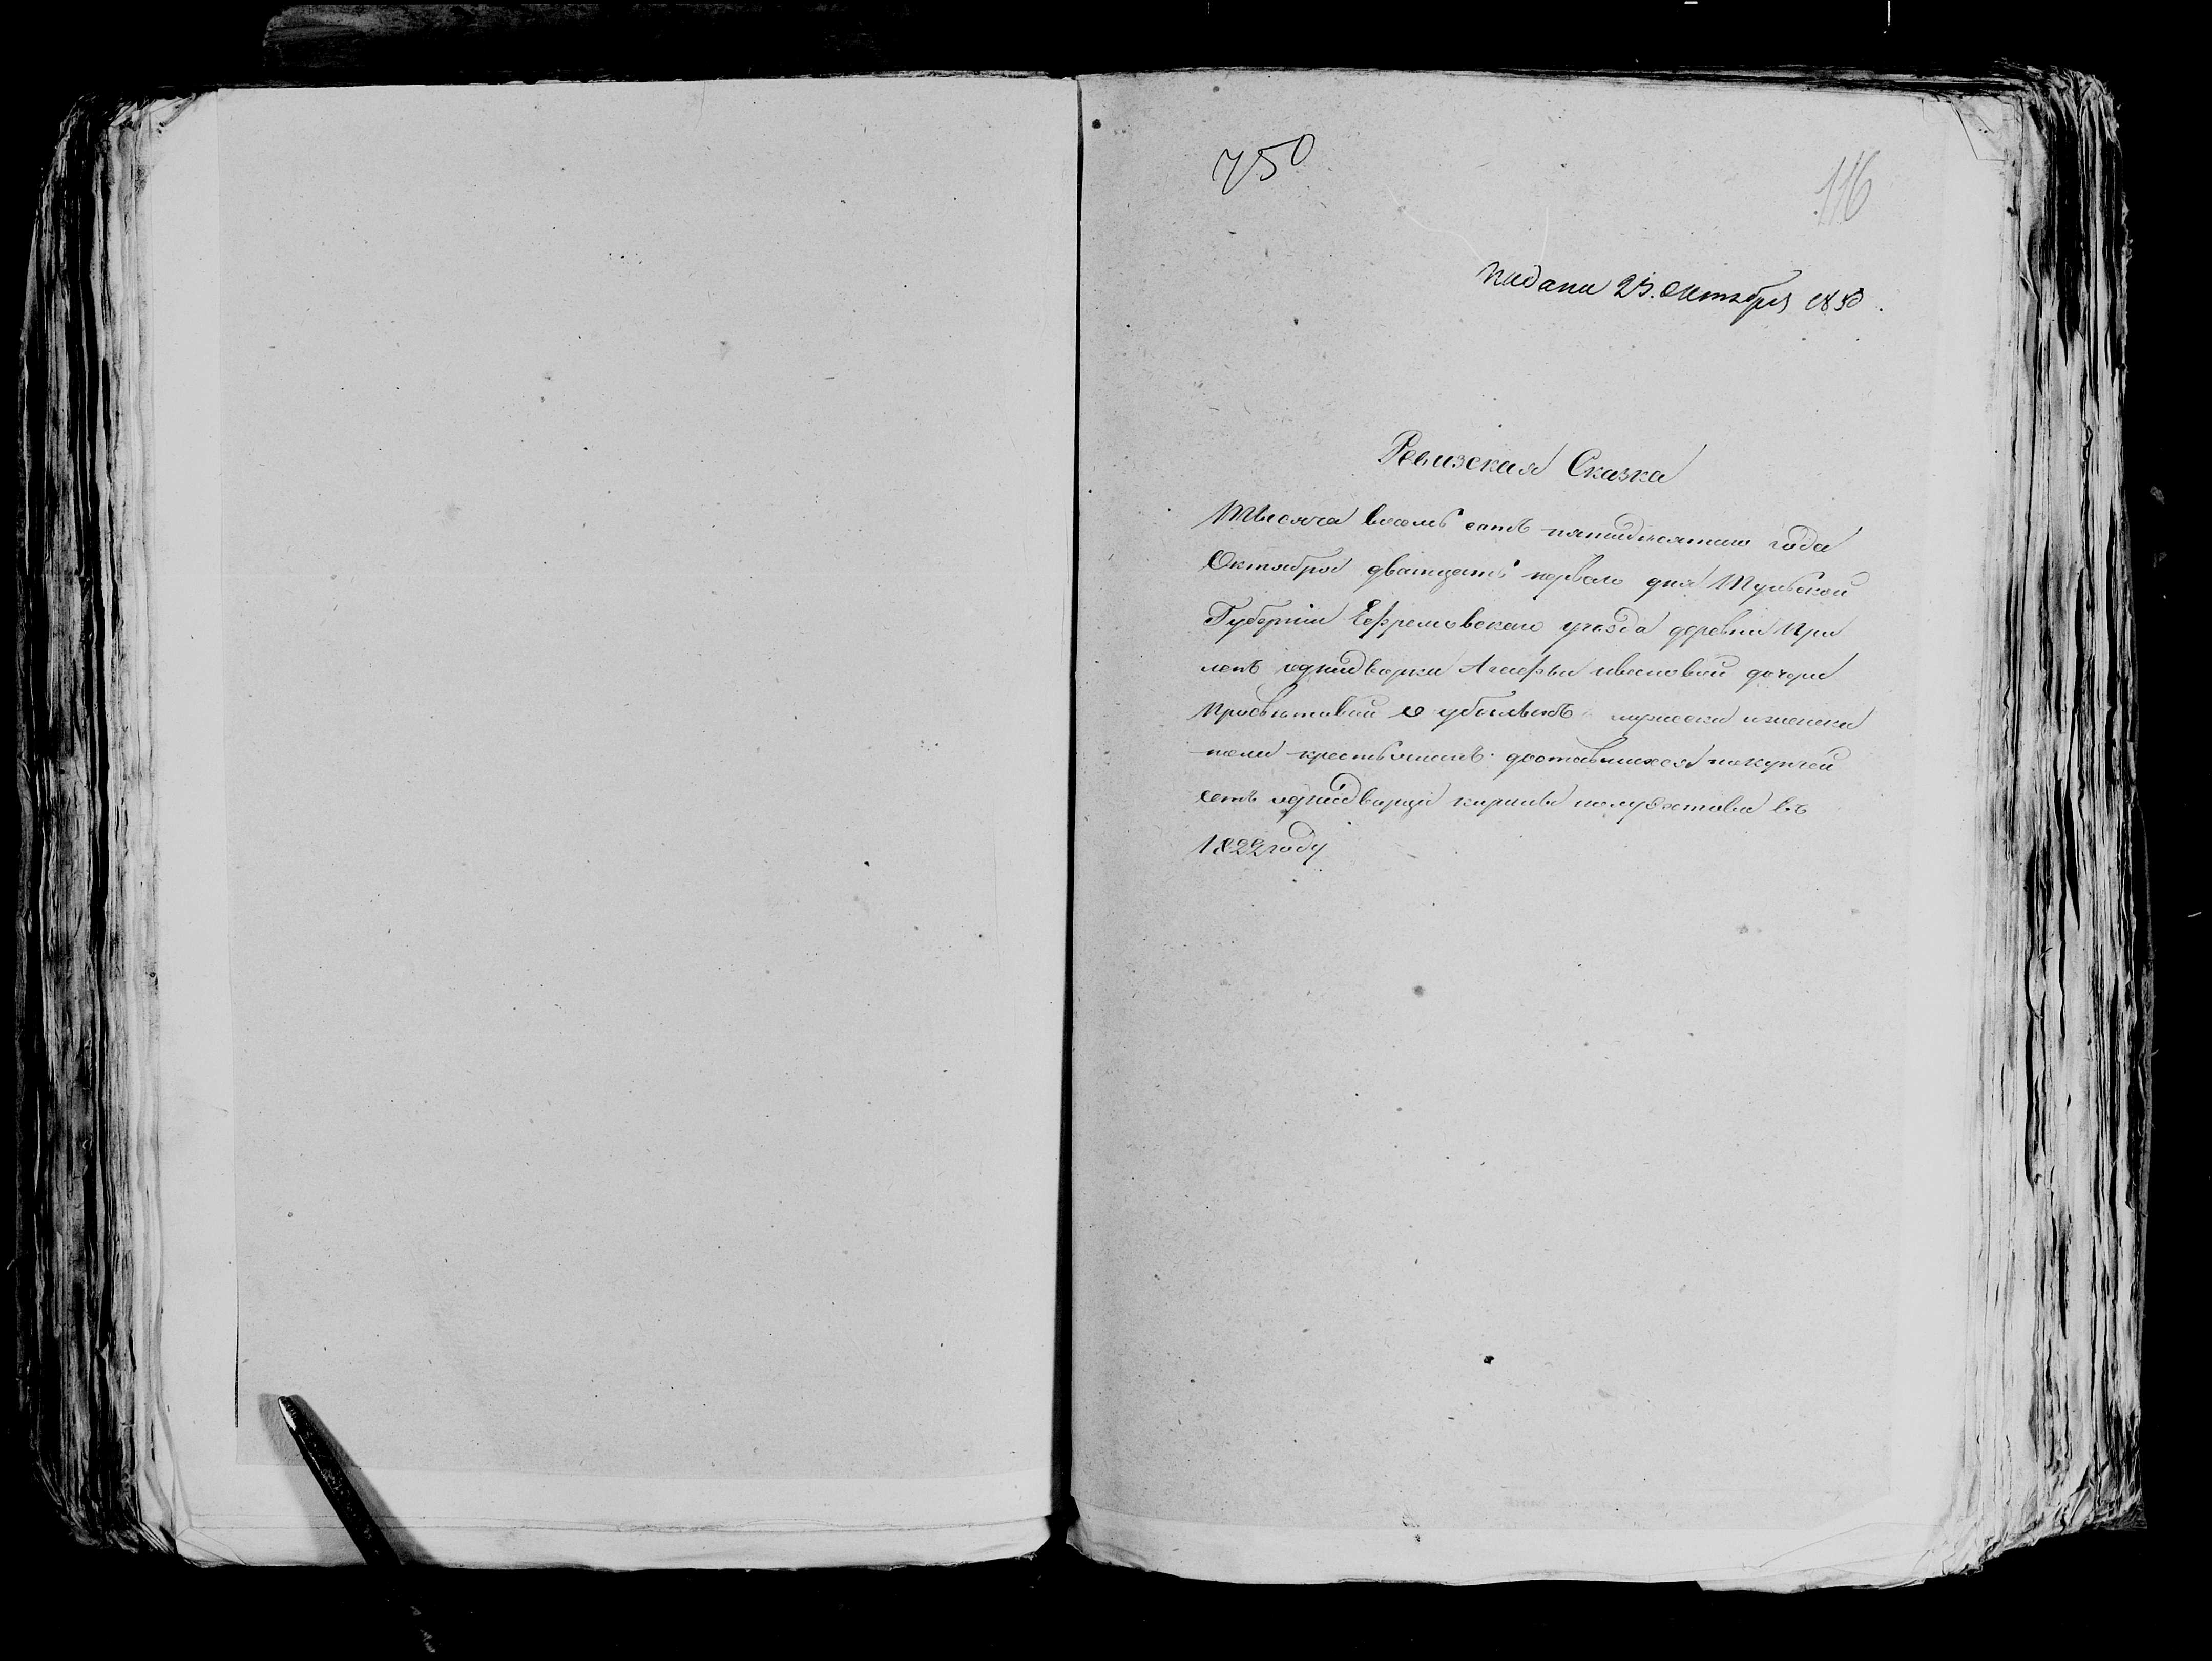 750
116
Подана 25. Октября 1850.
Ревизская Сказка
Тысяча восемь сотъ пятидесятаго года
Октября дватцать перваго дня Тульской
Губернии Ефремовскаго уезда деревни При
лепъ однодворки Агафьи ивановой дочери
о убылыхъ мужска и женска
пола крестьянахъ доставшихся по купчей
отъ однодворца в
1822 году